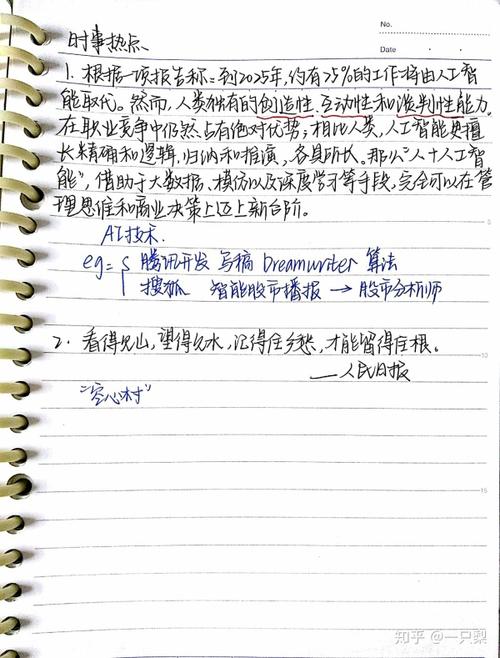 No.
Date
时事热点
1. 根据一项报告称：到2025年，约有25%的工作将由人工智
能取代。然而，人类独有的创造性、互动性和谈判性能力，
在职业竞争中仍然占有绝对优势；相比人类，人工智能更擅
长精确和逻辑、归纳和推演，各具所长。那么“人+人工智
能”，借助于大数据、模仿以及深度学习等手段，完全可以在管
理思维和商业决策上迈上新台阶。
AI技术.
eg = { 腾讯开发 写稿 Dreamwriter 算法
搜狐 智能股市播报 → 股市分析师
2. 看得见山，望得见水，记得住乡愁，才能留得住根。
——人民日报
“空心村”
知乎 @一只梨